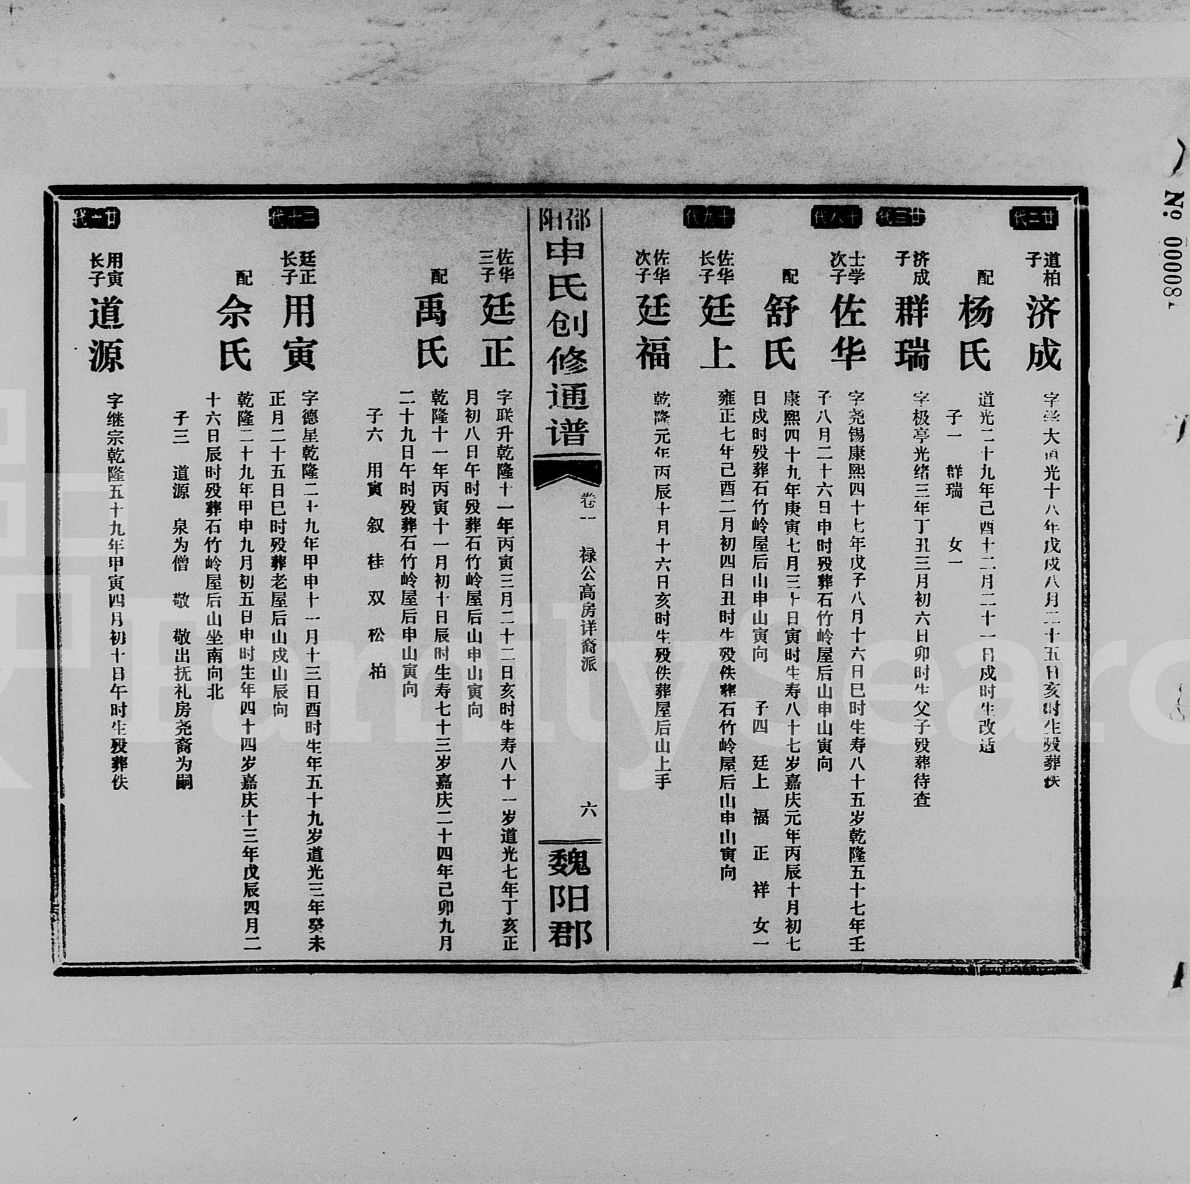 No. 00008
廿二代
道柏
子
济成
字学大道光十八年戊戌八月二十五日亥时生殁葬佚
配
杨氏
道光二十九年己酉十二月二十一日戌时生改适
子一 群瑞 女一
廿三代
济成
子
群瑞
字极亭光绪三年丁丑三月初六日卯时生父子殁葬待查
十八代
士学
次子
佐华
字尧锡康熙四十七年戊子八月十六日巳时生寿八十五岁乾隆五十七年壬
子八月二十六日申时殁葬石竹岭屋后山申山寅向
配
舒氏
康熙四十九年庚寅七月三十日寅时生寿八十七岁嘉庆元年丙辰十月初七
日戌时殁葬石竹岭屋后山申山寅向 子四 廷上 福 正 祥 女一
十九代
佐华
长子
廷上
雍正七年己酉二月初四日丑时生殁佚葬石竹岭屋后山申山寅向
佐华
次子
廷福
乾隆元年丙辰十月十六日亥时生殁佚葬屋后山上手
邵阳
申氏创修通谱
卷一 禄公高房详裔派
六
魏阳郡
佐华
三子
廷正
字联升乾隆十一年丙寅三月二十二日亥时生寿八十一岁道光七年丁亥正
月初八日午时殁葬石竹岭屋后山申山寅向
配
禹氏
乾隆十一年丙寅十一月初十日辰时生寿七十三岁嘉庆二十四年己卯九月
二十九日午时殁葬石竹岭屋后申山寅向
子六 用寅 叙 桂 双 松 柏
二十代
廷正
长子
用寅
字德星乾隆二十九年甲申十一月十三日酉时生年五十九岁道光三年癸未
正月二十五日巳时殁葬老屋后山戍山辰向
配
佘氏
乾隆二十九年甲申九月初五日申时生年四十四岁嘉庆十三年戊辰四月二
十六日辰时殁葬石竹岭屋后山坐南向北
子三 道源 泉为僧 敬 敬出抚礼房尧裔为嗣
廿一代
用寅
长子
道源
字继宗乾隆五十九年甲寅四月初十日午时生殁葬佚
FamilySearc